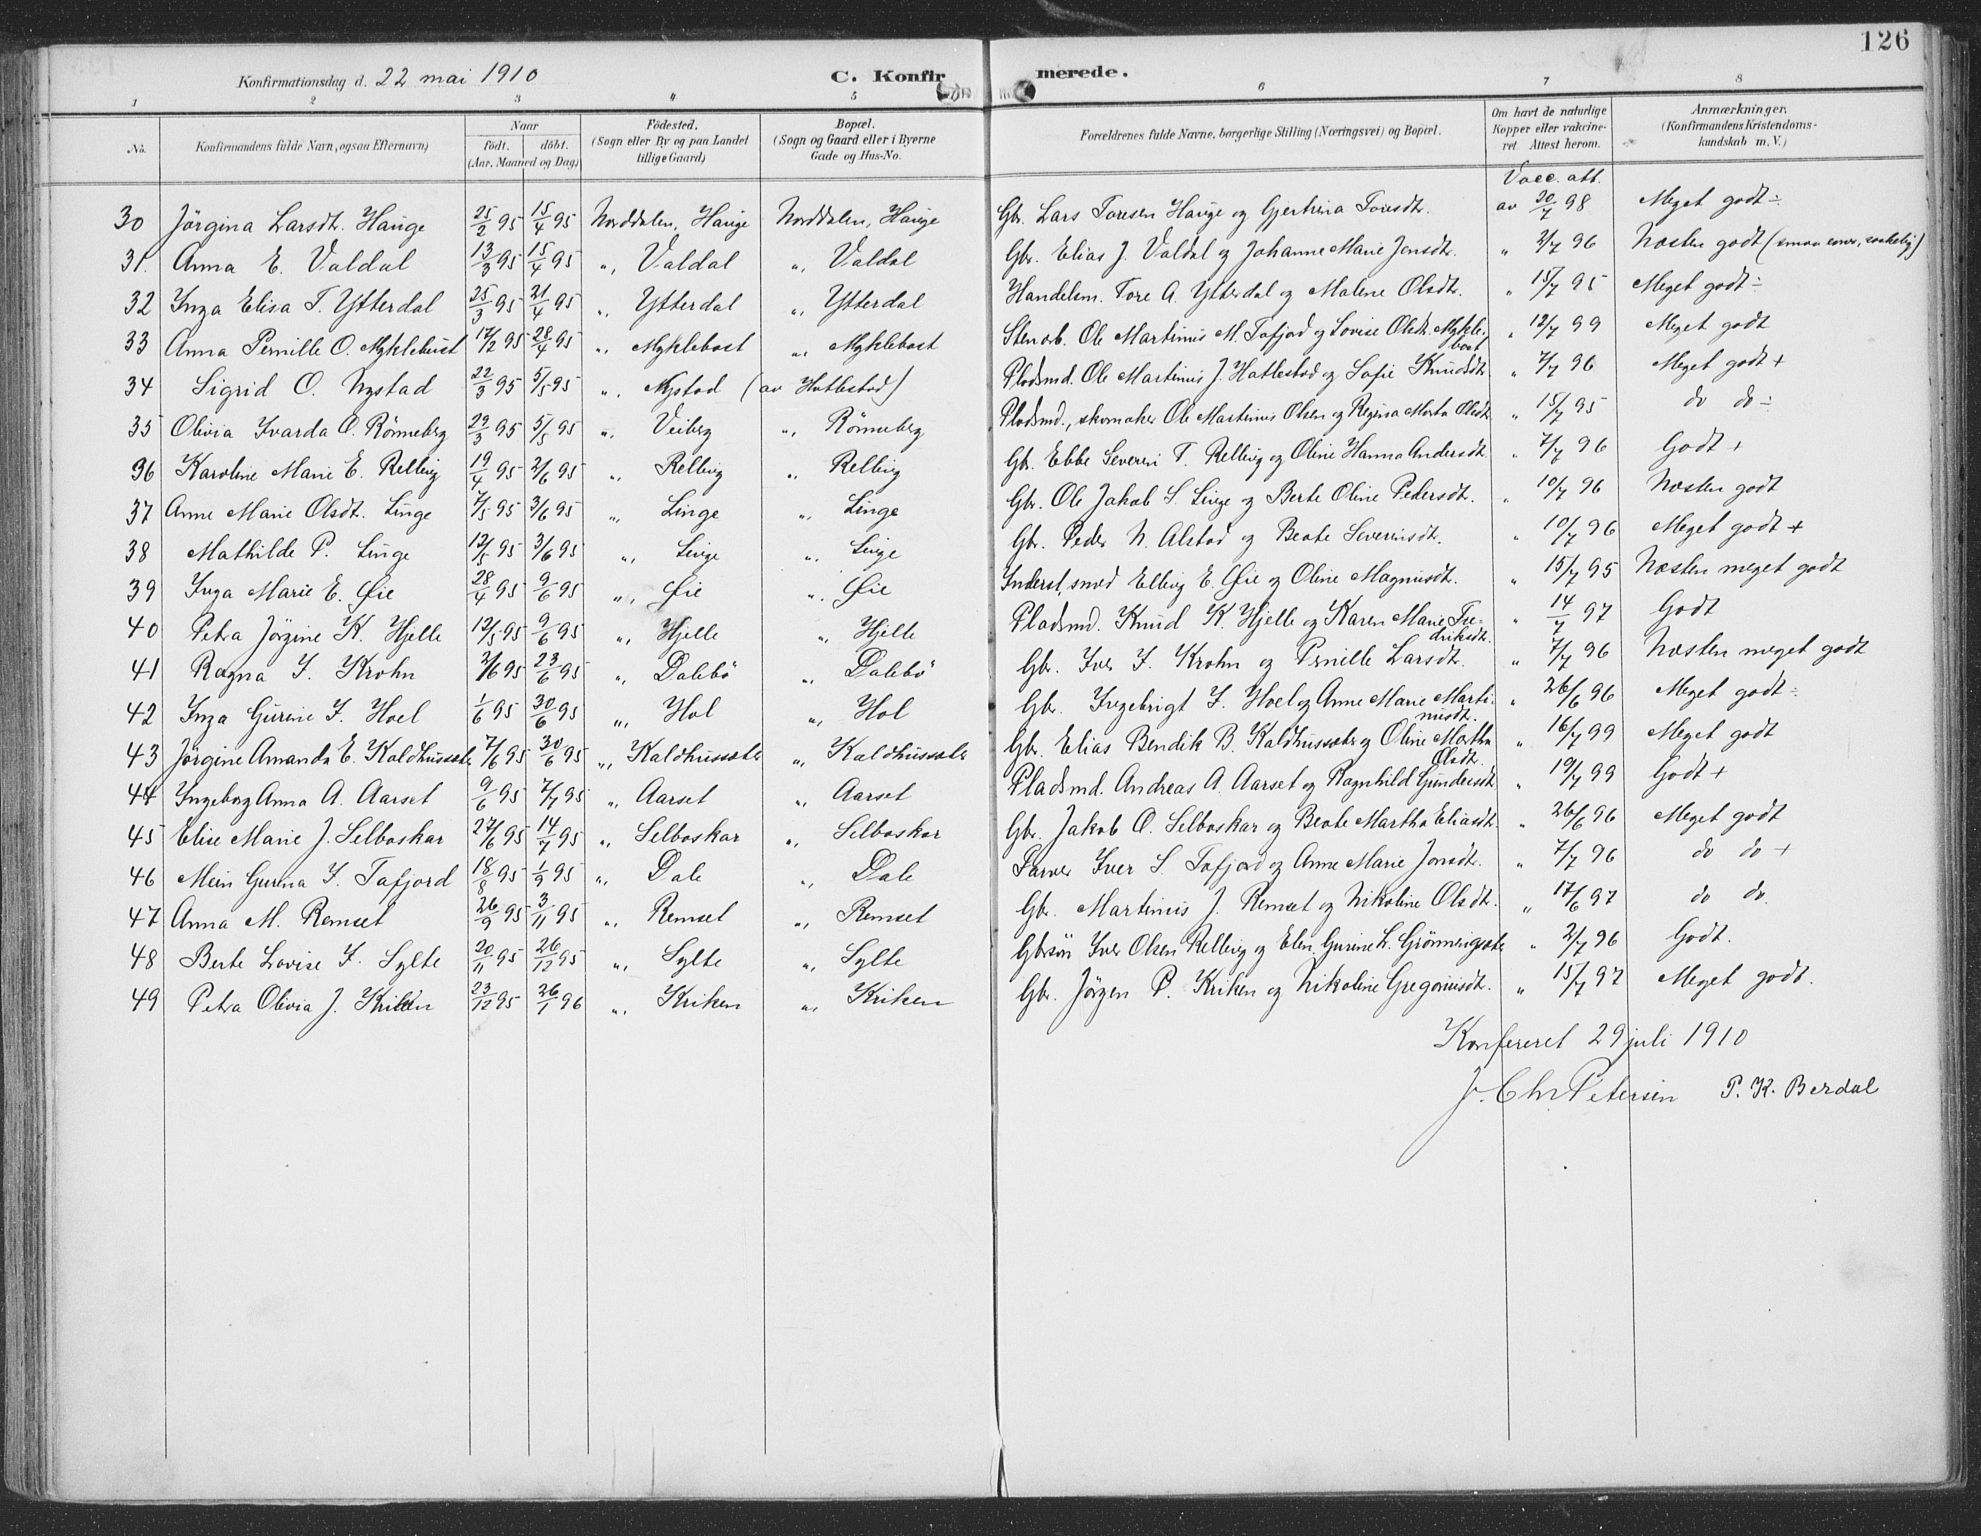 126
Konfirmationsdag d. 22 mai 1910 C. Konfirmerede.
1 2 3 4 5 6 7 8
No. Konfirmandens fulde Navn, ogsaa Efternavn) Naar født. døbt. (Aar, Maaned og Dag) Fødested. (Sogn eller By og paa Landet tillige Gaard) Bopæl. (Sogn og Gaard eller i Byerne Gade og Hus-No. Forældrenes fulde Navne, borgerlige Stilling (Næringsvei) og Bopæl. Om havt de naturlige Kopper eller vakcineret. Attest herom. Anmærkninger. (Konfirmandens Kristendomskundskab m. V.)
Vacc. att.
30 Jörgina Larsdt. Hauge 25/2 95 15/4 95 Norddalen, Hauge Norddalen, Hauge Gbr. Lars Toresen Hauge og Gjertrina Toresdtr. av 30/7 98 Meget godt ÷
31. Anna E. Valdal 13/3 95 15/4 95 " Valdal " Valdal Gbr. Elias J. Valdal og Johanne Marie Jonsdtr. " 2/7 96 Næsten godt
32 Inga Elisa T. Ytterdal 25/3 95 21/4 95 " Ytterdal " Ytterdal Handelsm. Tore A. Ytterdal og Malene Olsdtr. " 15/7 95 Meget godt ÷
33 Anna Pernille O. Myklebust 17/2 95 28/4 95 " Myklebost " Myklebost Stenarb. Ole Martinus M. Tafjord og Lovise Olsdtr. Myklebost " 12/7 99 Meget godt
34 Sigrid O. Nystad 22/3 95 5/5 95 " Nystad (av Hatlestad) Pladsmd. Ole Martinus J. Hatlestad og Sofie Knudsdtr. " 7/7 96 Meget godt +
35 Olivia Ivarda O. Rönneberg 29/3 95 5/5 95 " Veiberg " Rönneberg Pladsmd., skomaker Ole Martinus Olsen og Regina Marta Olsdtr. " 15/7 95 do do ÷
36 Karoline Marie E. Relling 19/4 95 2/6 95 " Relling " Relling Gbr. Ebbe Severin T. Relling og Oline Hanna Andersdtr. " 7/7 96 Godt +
37 Anne Marie Olsdt. Linge 7/5 95 3/6 95 " Linge " Linge Gbr. Ole Jakob S. Linge og Berte Oline Pedersdt. " 10/7 96 Næsten godt
38 Mathilde P. Linge 12/5 95 3/6 95 " Linge " Linge Gbr. Peder N. Alstad og Beate Severinsdtr. " 10/7 96 Meget godt +
39 Inga Marie E. Øie 28/4 95 9/6 95 " Øie " Øie Inderst, smed Elling E. Øie og Oline Magnusdtr. " 15/7 95 Næsten meget godt
40 Petra Jörgine K. Hjelle 12/5 95 9/6 95 " Hjelle " Hjelle Pladsmd. Knud K. Hjelle og Karen Marie Fredriksdtr. " 14/7 97 Godt
41 Ragna I. Krohn 2/6 95 23/6 95 " Dalebö " Dalebö Gbr. Iver I. Krohn og Pernille Larsdtr. " 7/7 96 Næsten meget godt
42 Inga Gurine I. Hoel 1/6 95 30/6 95 " Hol " Hol Gbr. Ingebrigt I. Hoel og Anne Marie Martinusdtr. " 26/6 96 Meget godt ÷
43 Jörgine Amanda E. Kaldhussæter 7/6 95 30/6 95 " Kaldhussæter " Kaldhussæter Gbr. Elias Bendik B. Kaldhussæter og Oline Martha Olsdtr. " 16/7 99 Meget godt
44 Ingeborg Anna A. Aarset 9/6 95 7/7 95 " Aarset " Aarset Pladsmd. Andreas A. Aarset og Ragnhild Gundersdtr. " 19/7 99 Godt +
45 Eline Marie J. Selboskar 27/6 95 14/7 95 " Selboskar " Selboskar Gbr. Jakob O. Selboskar og Beate Martha Eliasdtr. " 26/6 96 Meget godt
46 Gurina I. Tafjord 18/8 95 1/9 95 " Dale " Dale Farver Iver S. Tafjord og Anne Marie Jonsdtr. " 7/7 96 do do +
47 Anna M. Remset 26/9 95 3/11 95 " Remset " Remset Gbr. Martinus J. Remset og Nikoline Olsdtr. " 17/6 97 do do.
48 Berte Lovise I. Sylte 20/11 95 26/12 95 " Sylte " Sylte Gbrsön Iver Olsen Relling og Elen Gurine L. Grönningsæter " 2/7 96 Godt.
49 Petra Olivia J. Kriken 23/12 95 26/1 96 " Kriken " Kriken Gbr. Jörgen P. Kriken og Nikoline Gregoriusdt. " 15/7 97 Meget godt.
Konfereret 29 juli 1910
J. Chr. Petersen P. K. Berdal